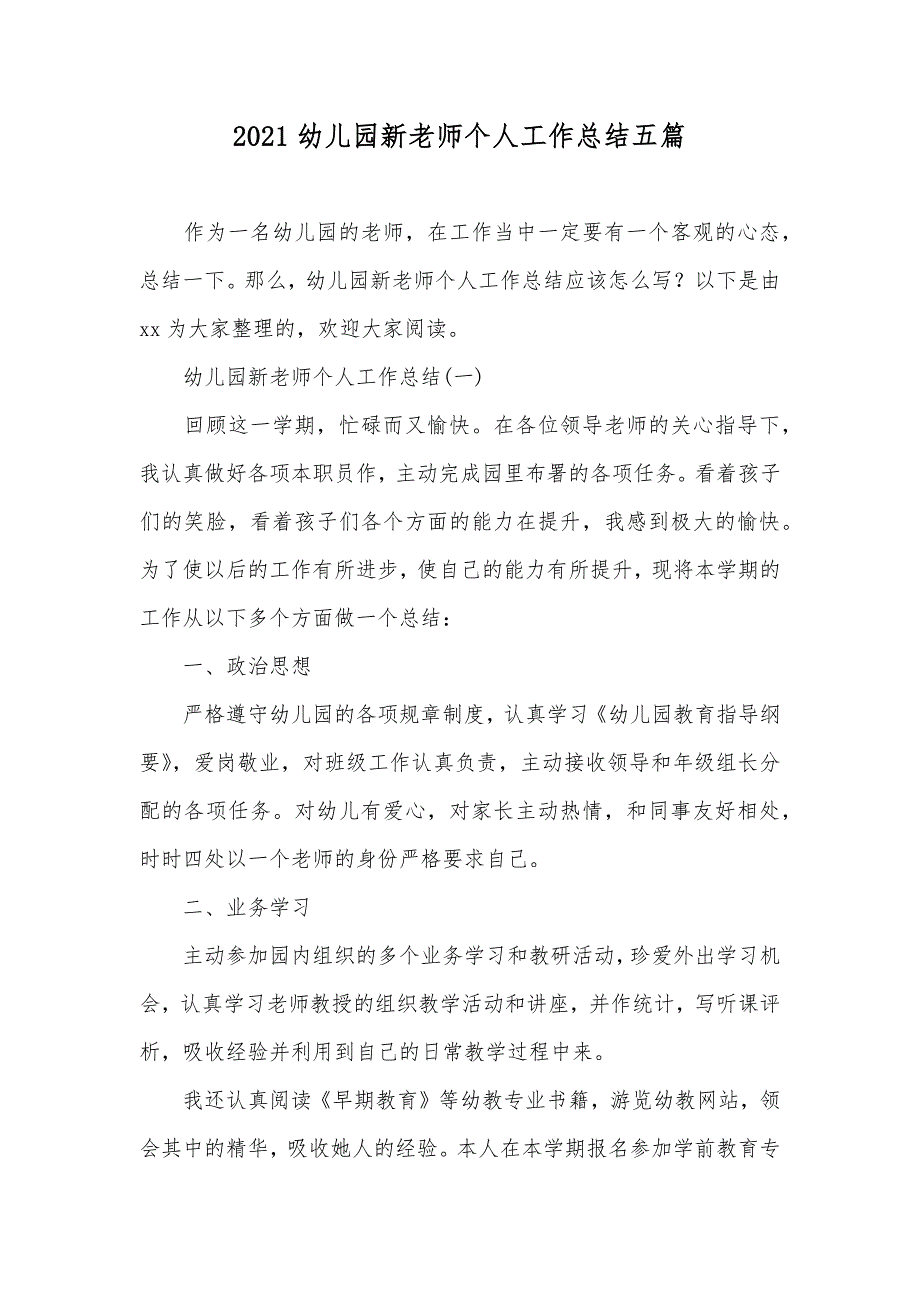 2021幼儿园新老师个人工作总结五篇
作为一名幼儿园的老师，在工作当中一定要有一个客观的心态，
总结一下。那么，幼儿园新老师个人工作总结应该怎么写？以下是由
xx为大家整理的，欢迎大家阅读。
幼儿园新老师个人工作总结(一)
回顾这一学期，忙碌而又愉快。在各位领导老师的关心指导下，
我认真做好各项本职员作，主动完成园里布署的各项任务。看着孩子
们的笑脸，看着孩子们各个方面的能力在提升，我感到极大的愉快。
为了使以后的工作有所进步，使自己的能力有所提升，现将本学期的
工作从以下多个方面做一个总结：
一、政治思想
严格遵守幼儿园的各项规章制度，认真学习《幼儿园教育指导纲
要》，爱岗敬业，对班级工作认真负责，主动接收领导和年级组长分
配的各项任务。对幼儿有爱心，对家长主动热情，和同事友好相处，
时时四处以一个老师的身份严格要求自己。
二、业务学习
主动参加园内组织的多个业务学习和教研活动，珍爱外出学习机
会，认真学习老师教授的组织教学活动和讲座，并作统计，写听课评
析，吸收经验并利用到自己的日常教学过程中来。
我还认真阅读《早期教育》等幼教专业书籍，游览幼教网站，领
会其中的精华，吸收她人的经验。本人在本学期报名参加学前教育专